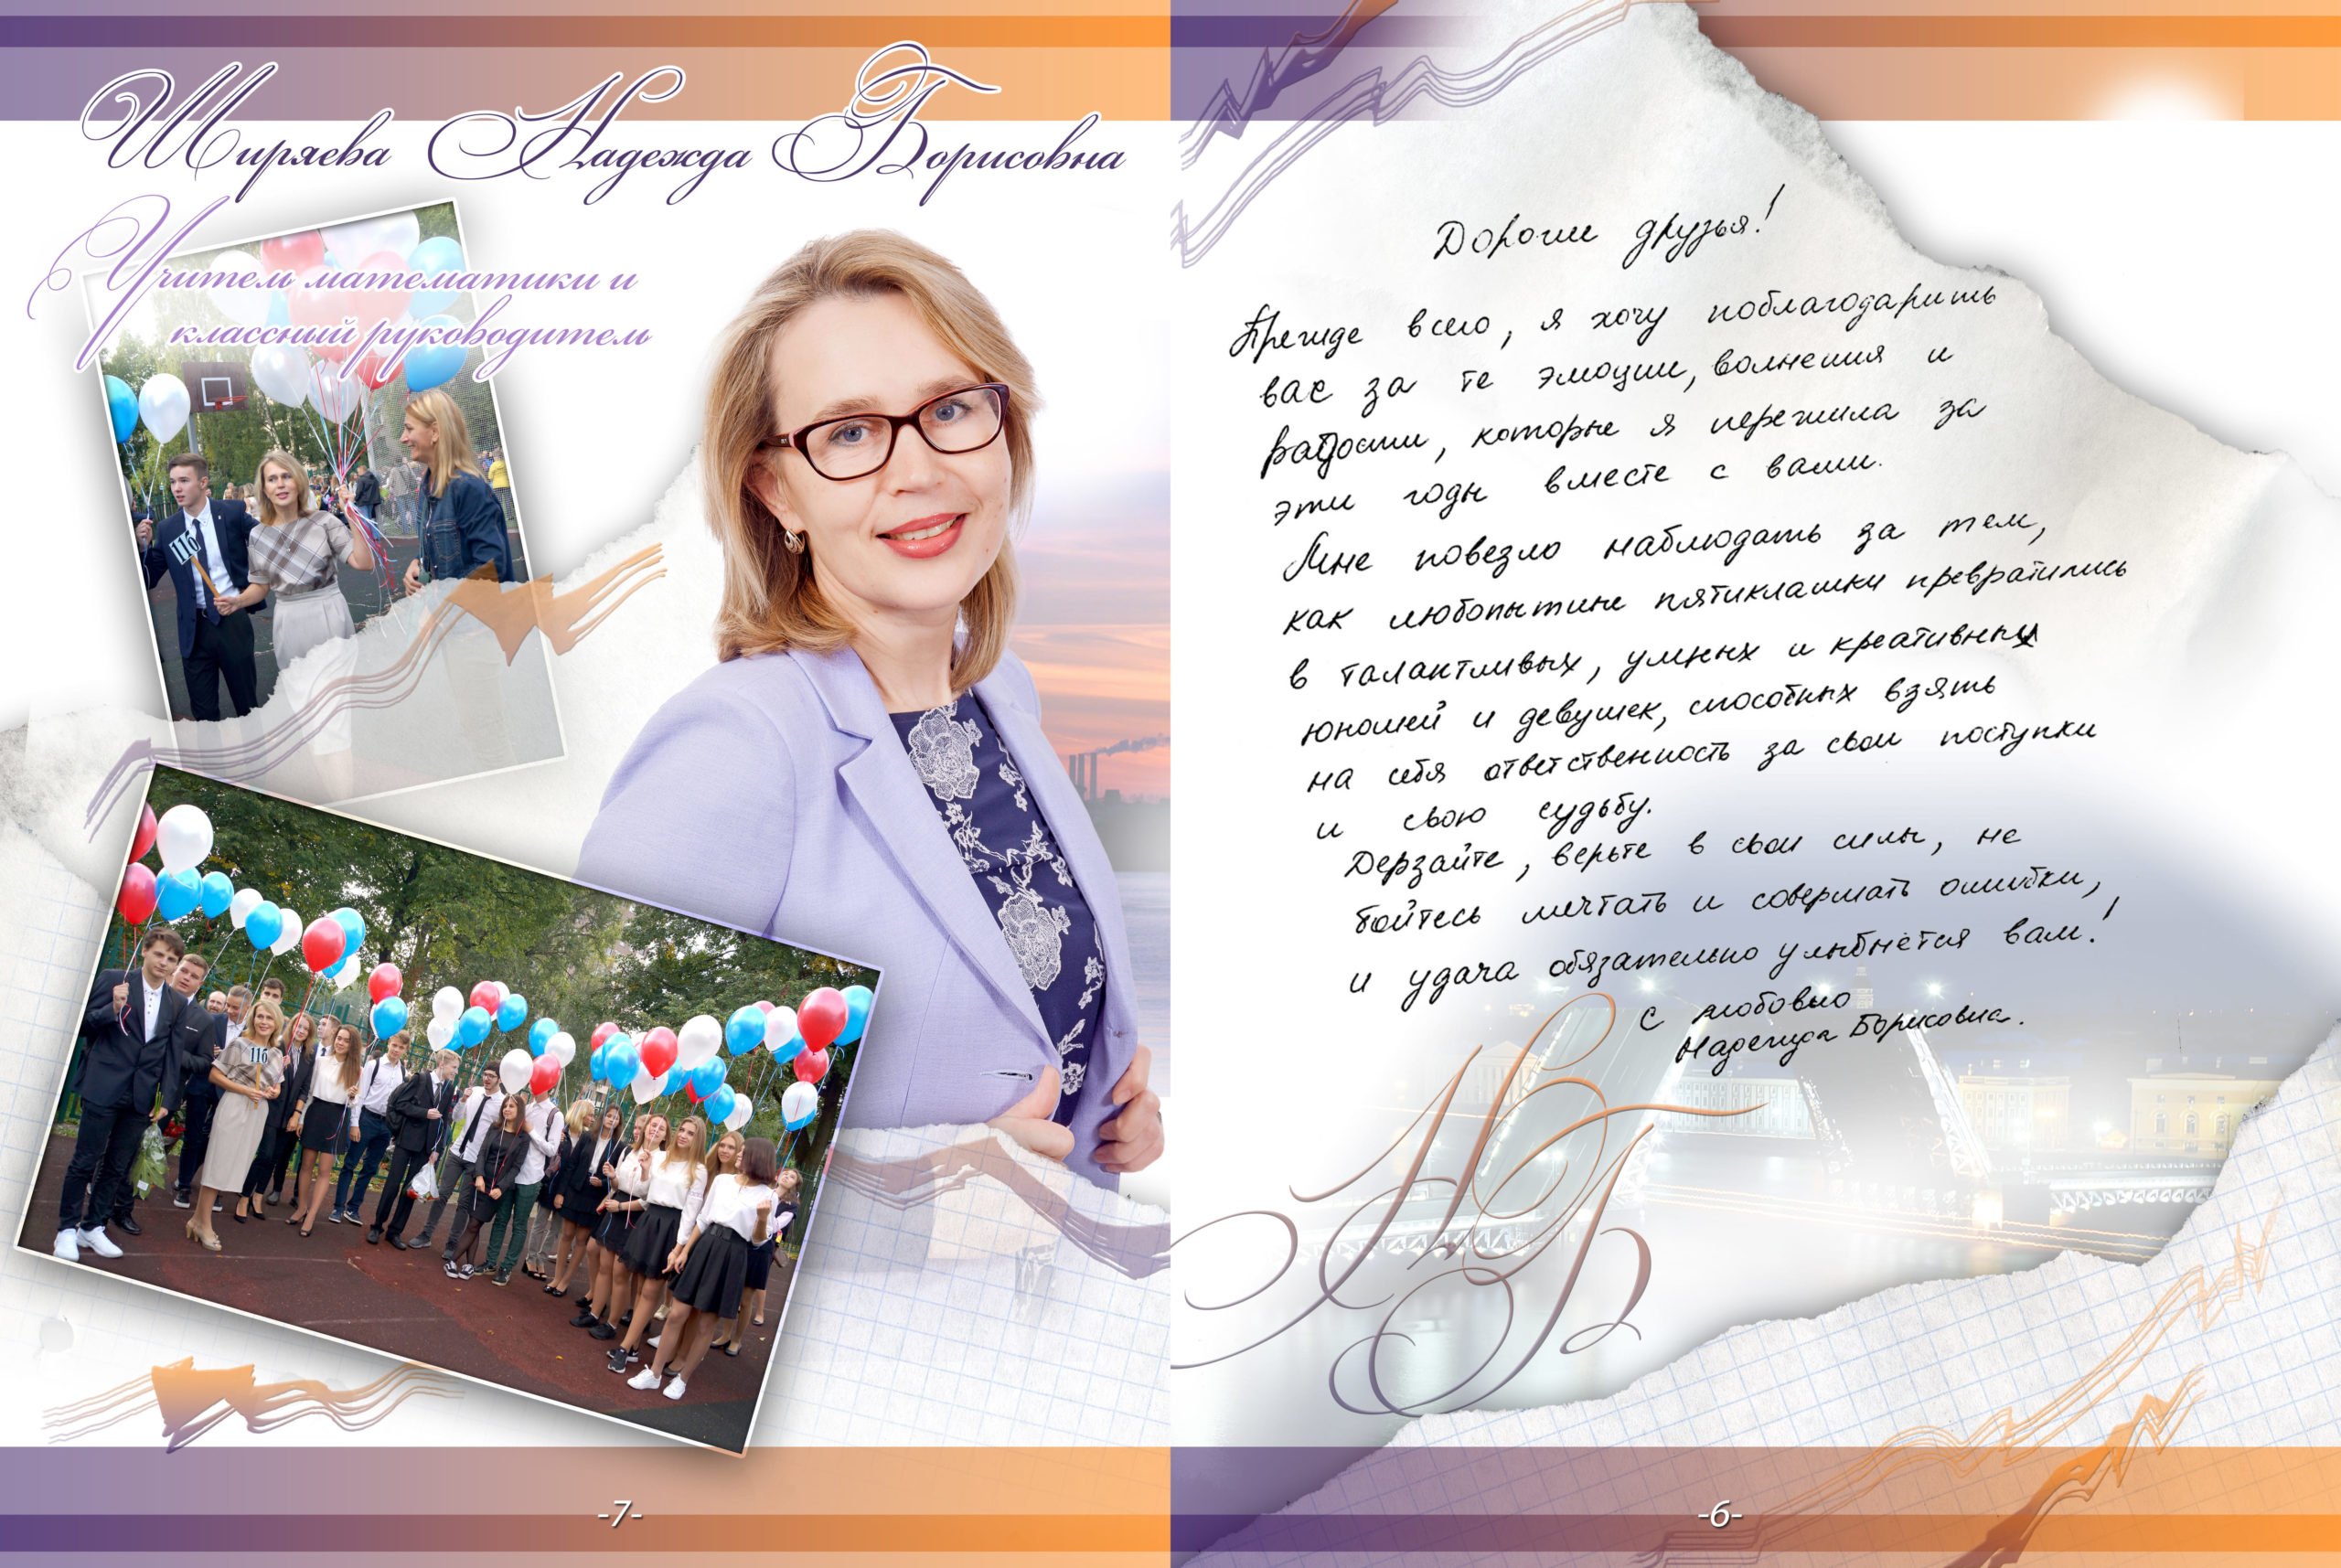 Ширяева Надежда Борисовна
Учитель математики и
классный руководитель
11б
11б
-7-
Дорогие друзья!
Прежде всего, я хочу поблагодарить
вас за те эмоции, волнения и
радости, которые я пережила за
эти годы вместе с вами.
Мне повезло наблюдать за тем,
как любопытные пятиклашки превратились
в талантливых, умных и креативных
юношей и девушек, способных взять
на себя ответственность за свои поступки
и свою судьбу.
Дерзайте, верьте в свои силы, не
бойтесь мечтать и совершать ошибки,
и удача обязательно улыбнётся вам!
С любовью
Надежда Борисовна.
НБ
-6-